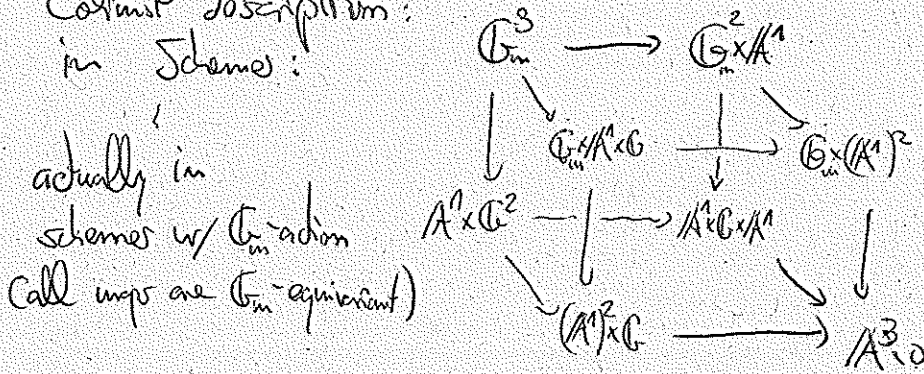 Colimit description:
in Schemes:
actually in
schemes w/ 𝔾_m-action
(all maps are 𝔾_m-equivariant)
𝔾_m^3 → 𝔾_m^2×𝔸^1
𝔾_m×𝔸^1×𝔾 → 𝔾_m×(𝔸^1)^2
𝔸^1×𝔾^2 → 𝔸^1×𝔾×𝔸^1
(𝔸^1)^2×𝔾 → 𝔸^3∖0